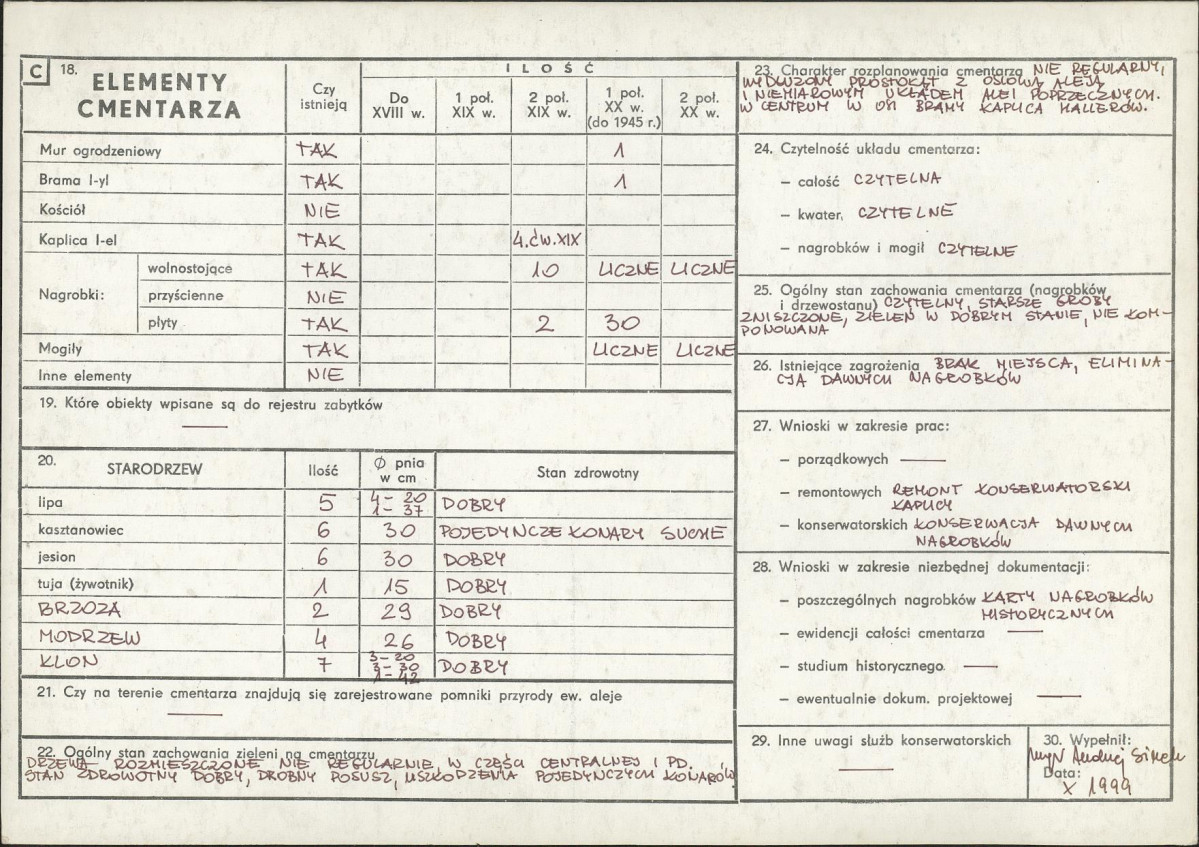 C 18. ELEMENTY CMENTARZA
Czy istnieją
ILOŚĆ
Do XVIII w.
1 poł. XIX w.
2 poł. XIX w.
1 poł. XX w. (do 1945 r.)
2 poł. XX w.
Mur ogrodzeniowy TAK 1
Brama I-yl TAK 1
Kościół NIE
Kaplica I-el TAK 4.ĆW.XIX
Nagrobki:
wolnostojące TAK 10 LICZNE LICZNE
przyścienne NIE
płyty TAK 2 30
Mogiły TAK LICZNE LICZNE
Inne elementy NIE
19. Które obiekty wpisane są do rejestru zabytków
—
20. STARODRZEW Ilość Ø pnia w cm Stan zdrowotny
lipa 5 4 – 20 1 – 37 DOBRY
kasztanowiec 6 30 POJEDYNCZE KONARY SUCHE
jesion 6 30 DOBRY
tuja (żywotnik) 1 15 DOBRY
BRZOZA 2 29 DOBRY
MODRZEW 4 26 DOBRY
KLON 7 3 – 20 3 – 30 1 – 42 DOBRY
21. Czy na terenie cmentarza znajdują się zarejestrowane pomniki przyrody ew. aleje
—
22. Ogólny stan zachowania zieleni na cmentarzu
DRZEWA ROZMIESZCZONE NIE REGULARNIE, W CZĘŚCI CENTRALNEJ I PD.
STAN ZDROWOTNY DOBRY, DROBNY POSUSZ, USZKODZENIA POJEDYNCZYCH KONARÓW
23. Charakter rozplanowania cmentarza NIE REGULARNY,
WYDŁUŻONY PROSTOKĄT Z OSIOWĄ ALEJĄ
I NIEMIAROWYM UKŁADEM ALEI POPRZECZNYCH.
W CENTRUM W OSI BRAMY KAPLICA HALLERÓW.
24. Czytelność układu cmentarza:
– całość CZYTELNA
– kwater, CZYTELNE
– nagrobków i mogił CZYTELNE
25. Ogólny stan zachowania cmentarza (nagrobków
i drzewostanu) CZYTELNY, STARSZE GROBY
ZNISZCZONE, ZIELEŃ W DOBRYM STANIE, NIE KOM-
PONOWANA
26. Istniejące zagrożenia BRAK MIEJSCA, ELIMINA-
CJA DAWNYCH NAGROBKÓW
27. Wnioski w zakresie prac:
– porządkowych —
– remontowych REMONT KONSERWATORSKI
KAPLICY
– konserwatorskich KONSERWACJA DAWNYCH
NAGROBKÓW
28. Wnioski w zakresie niezbędnej dokumentacji:
– poszczególnych nagrobków KARTY NAGROBKÓW
HISTORYCZNYCH
– ewidencji całości cmentarza —
– studium historycznego —
– ewentualnie dokum. projektowej —
29. Inne uwagi służb konserwatorskich
—
30. Wypełnił:
mgr Andrzej
Data:
X 1999